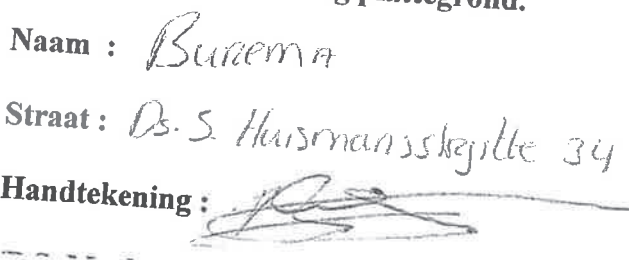 plattegrond.
Naam : Burema
Straat : Ds. S. Huismansstrjitte 34
Handtekening :